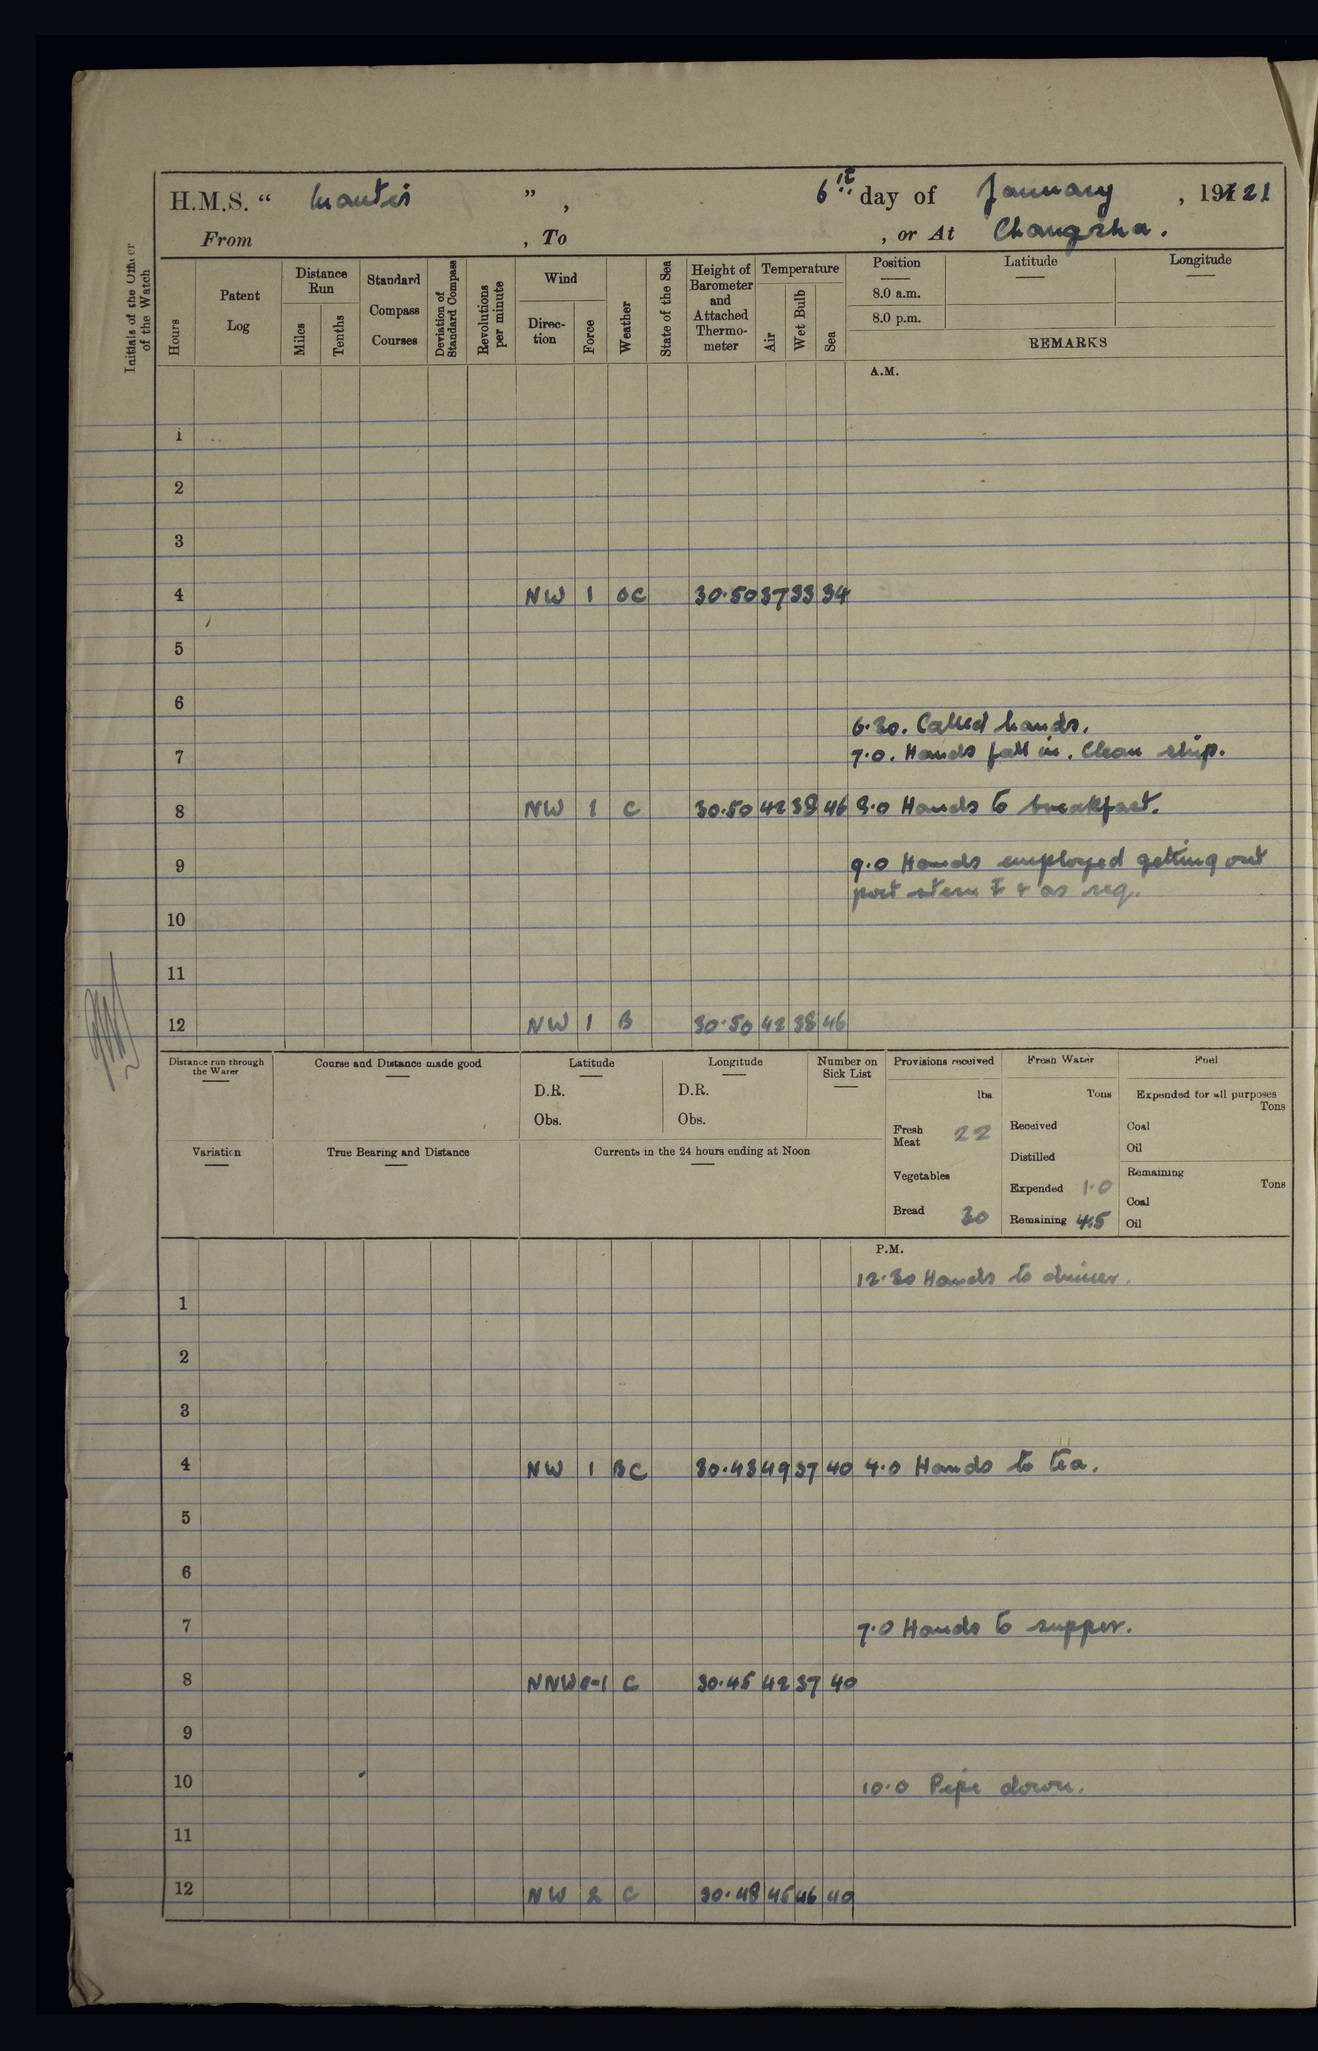 H.M.S. “ Mantis ” , 6th day of January , 1921
From , To , or At Changsha.
Initials of the Officer of the Watch
Hours
Patent Log
Distance Run
Miles
Tenths
Standard Compass Courses
Deviation of Standard Compass
Revolutions per minute
Wind
Direc- tion
Force
Weather
State of the Sea
Height of Barometer and Attached Thermo- meter
Temperature
Air
Wet Bulb
Sea
Position
8.0 a.m.
8.0 p.m.
Latitude
Longitude
REMARKS
A.M.
1
2
3
4 NW 1 OC 30.50 37 33 34
5
6
6.30. Called hands.
7 7.0. Hands fall in. Clean ship.
8 NW 1 C 30.50 42 38 46 8.0 Hands to breakfast.
9 9.0 Hands employed getting out
port stern & as req.
10
11
12 NW 1 B 30.50 42 38 46
Distance run through the Water
Course and Distance made good
Latitude
D.R.
Obs.
Longitude
D.R.
Obs.
Number on Sick List
Provisions received
lbs
Fresh Meat 22
Vegetables
Bread 30
Fresh Water
Tons
Received
Distilled
Expended 1.0
Remaining 4.5
Fuel
Expended for all purposes
Tons
Coal
Oil
Remaining
Tons
Coal
Oil
Variation
True Bearing and Distance
Currents in the 24 hours ending at Noon
P.M.
12.30 Hands to dinner.
1
2
3
4 NW 1 BC 30.43 49 37 40 4.0 Hands to tea.
5
6
7 7.0 Hands to supper.
8 NNW 0-1 C 30.45 42 37 40
9
10 10.0 Pipe down.
11
12 NW 2 C 30.48 45 46 40